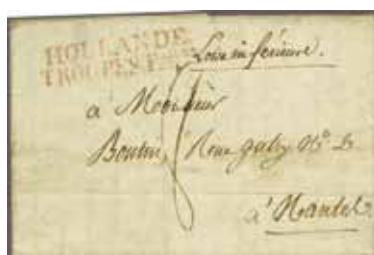 HOLLANDE
TROUPES
Loire inférieure.
à Monsieur
Boutin, Rue N°
à Nantes